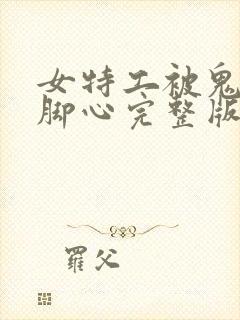 女特工被鬼
脚心完整版
羅父